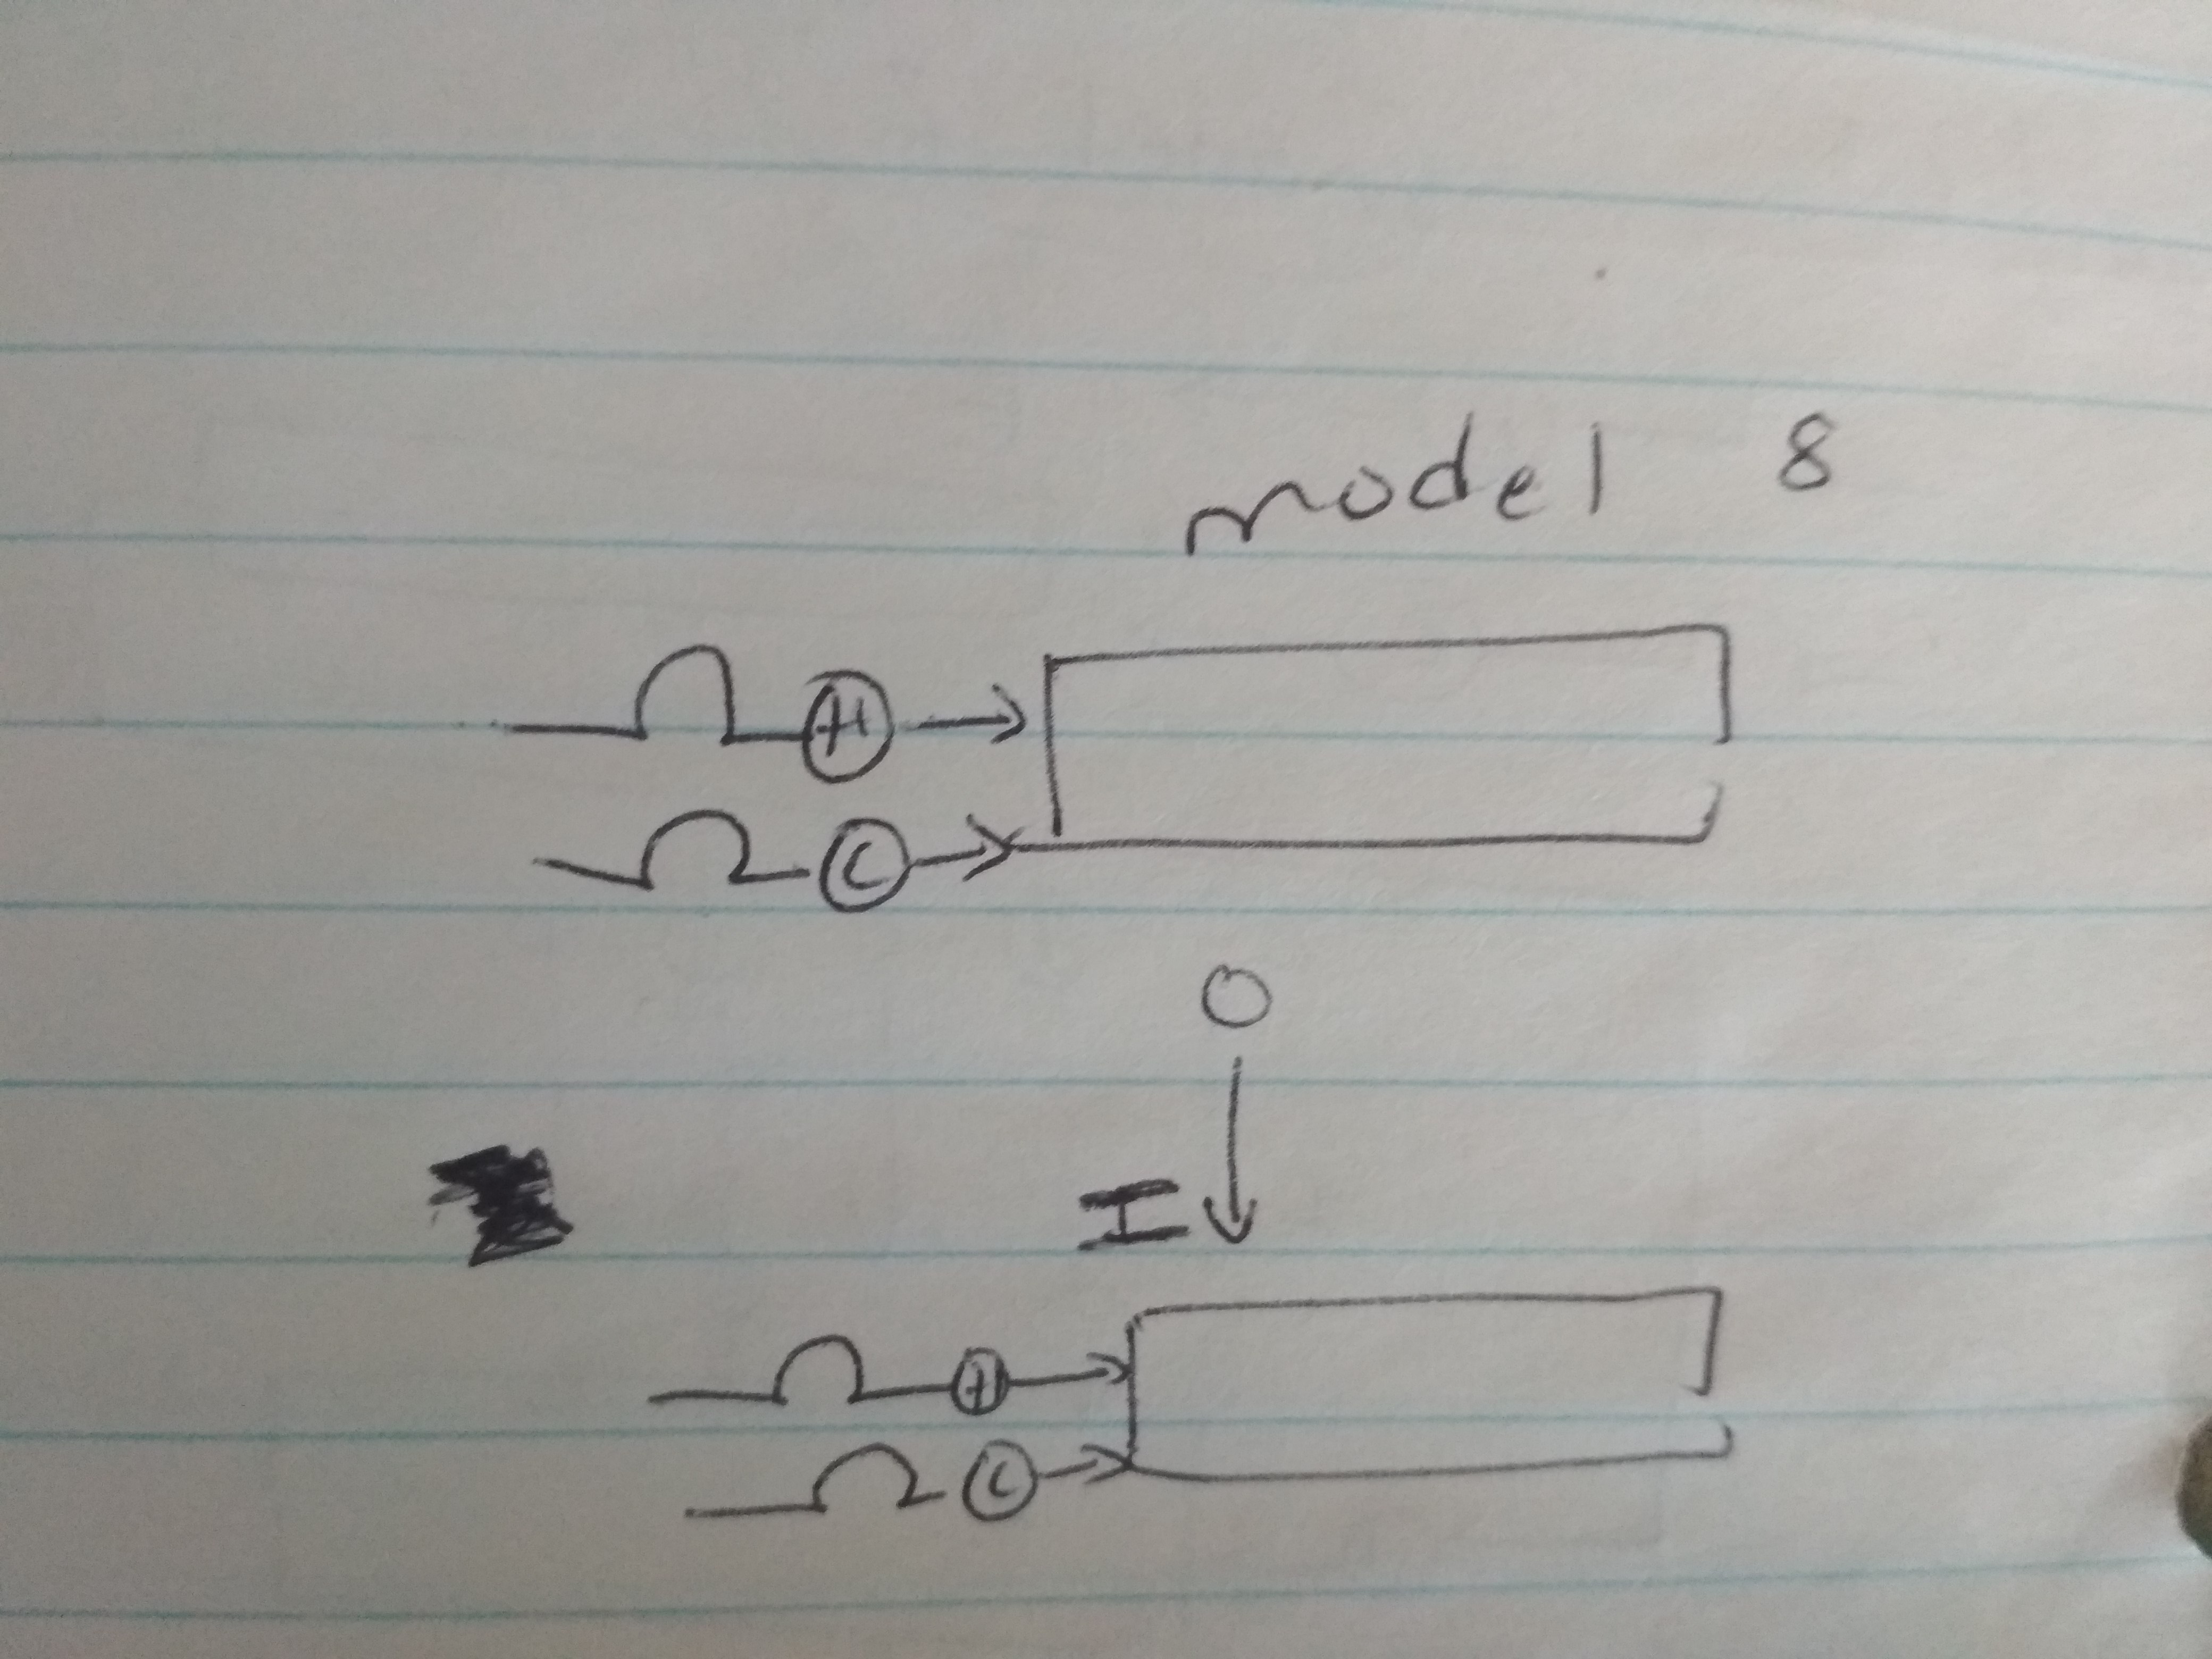 model 8
H
C
O
I
H
C